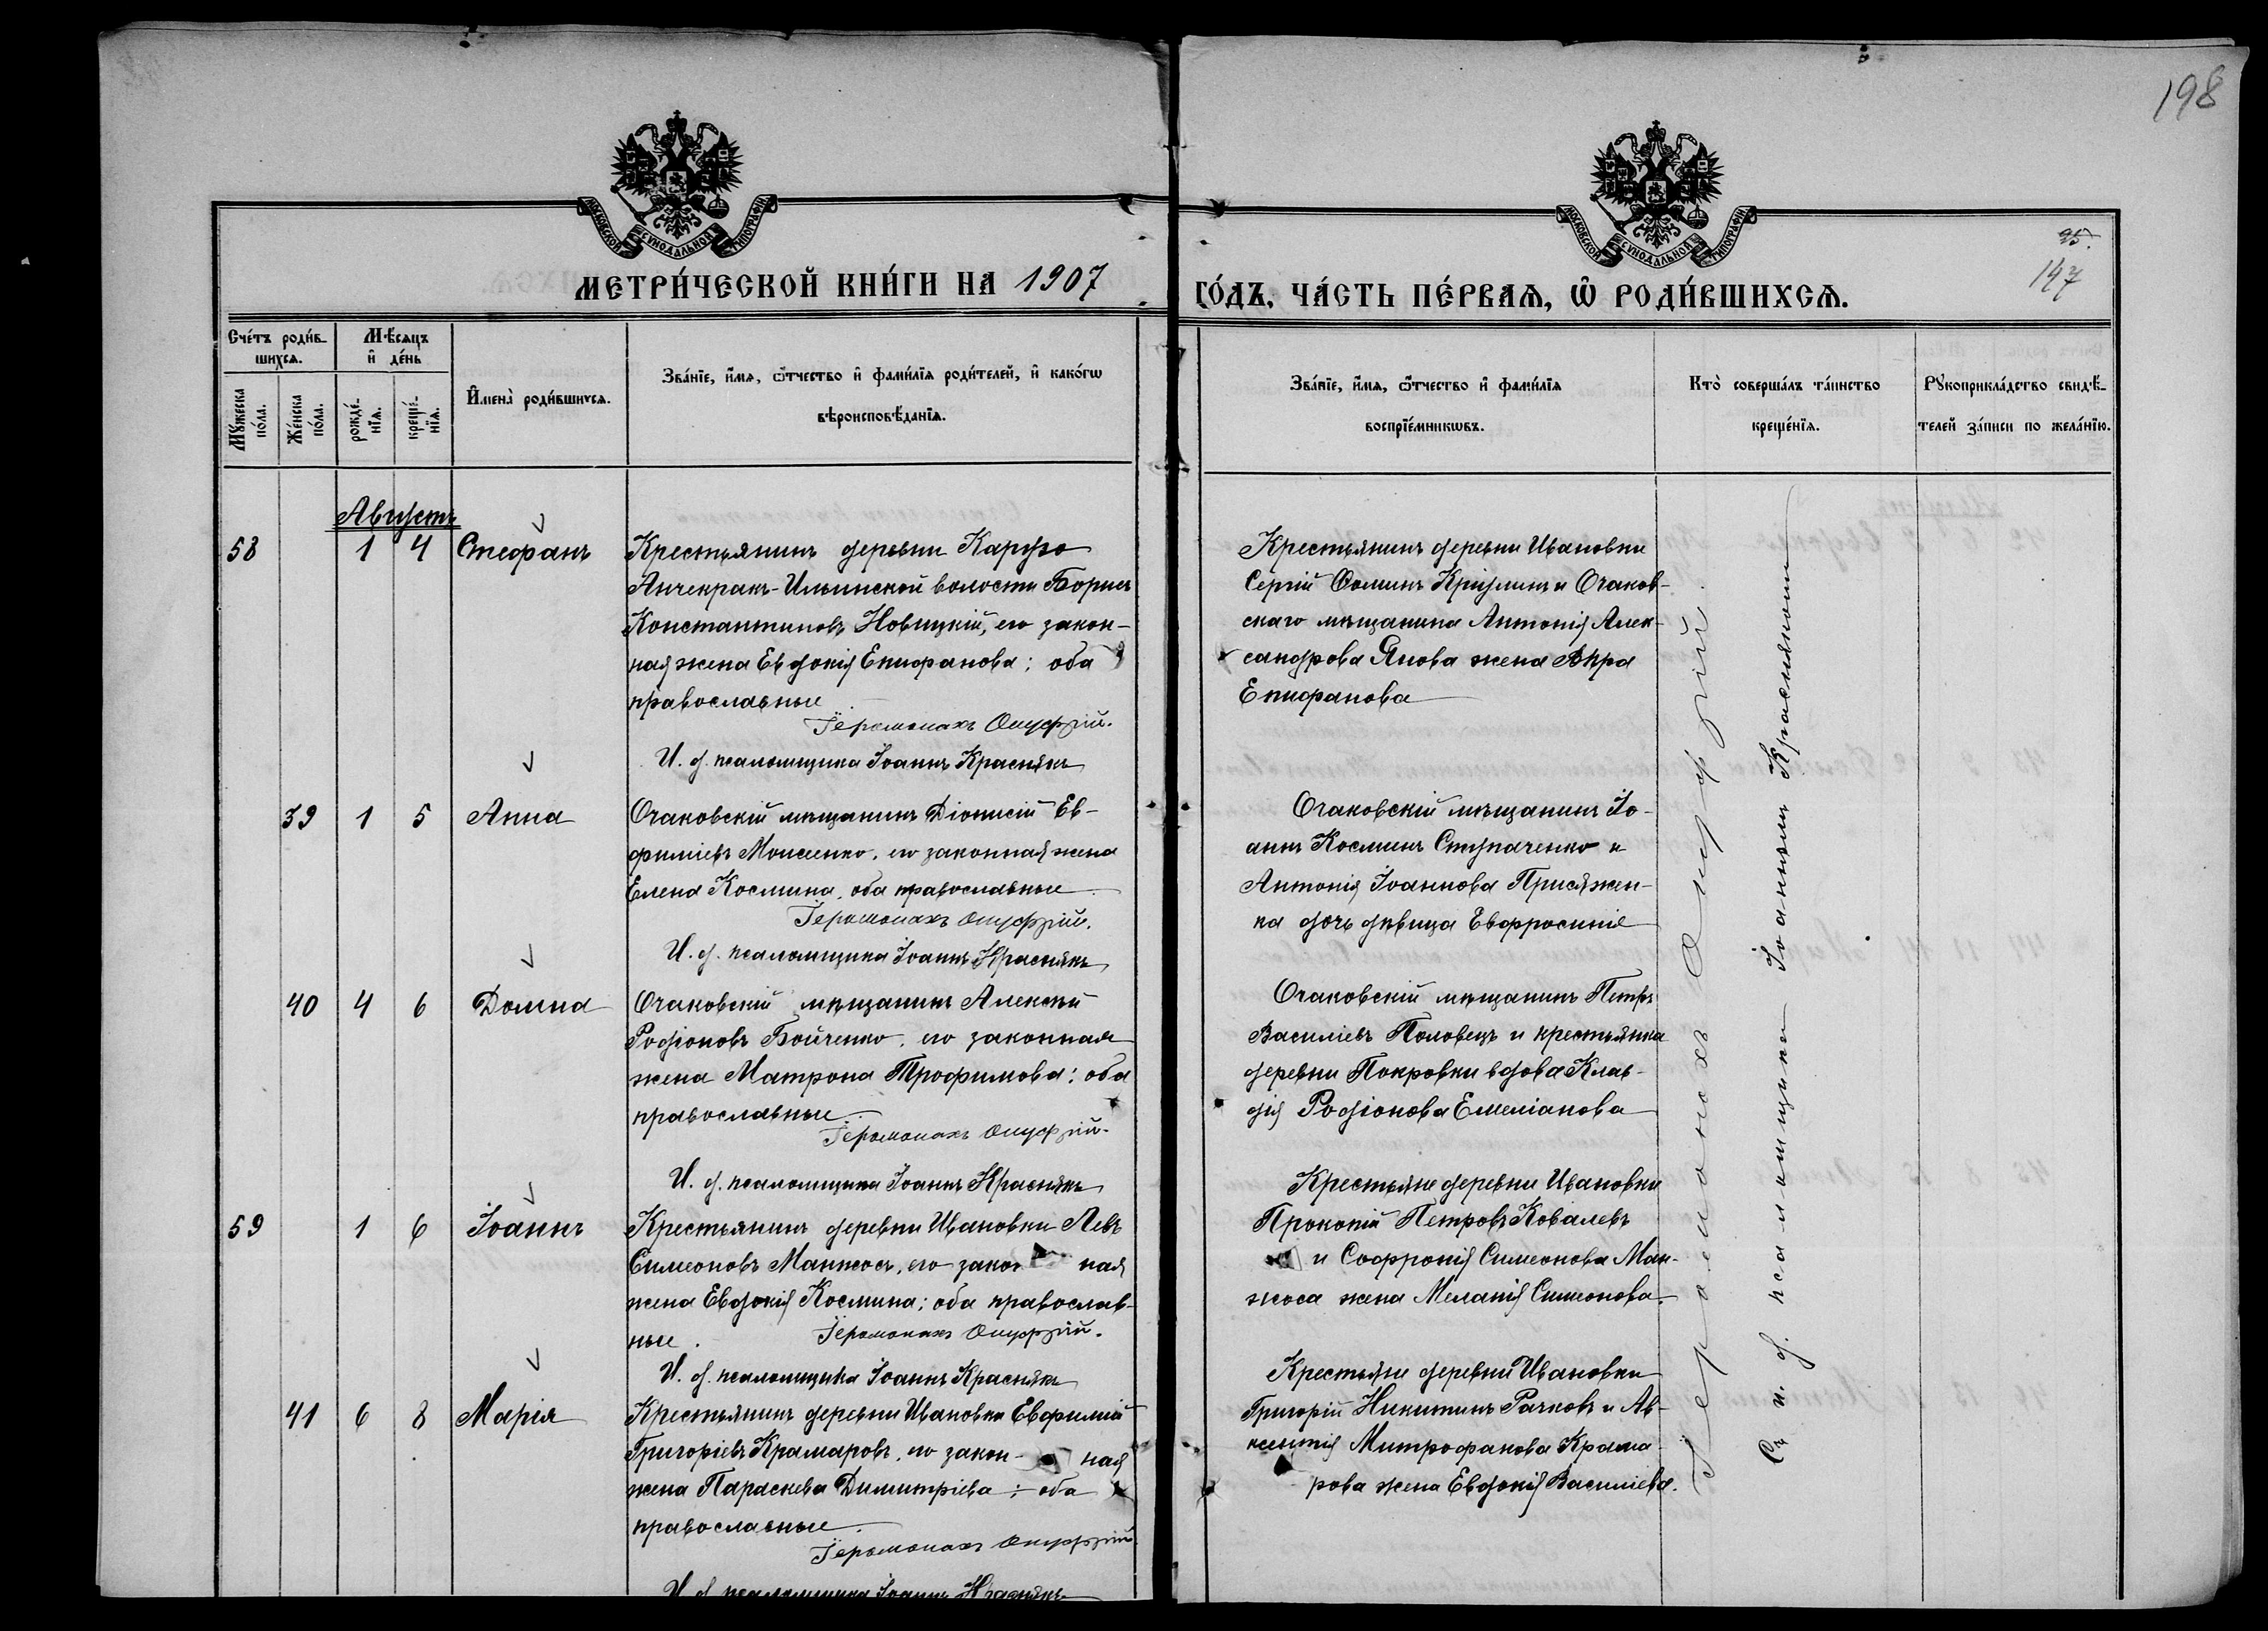 198
МОСКОВСКОЙ СѴНОДАЛЬНОЙ ТИПОГРАФІИ
МОСКОВСКОЙ СѴНОДАЛЬНОЙ ТИПОГРАФІИ
95.
147
МЕТРИ́ЧЕСКОЙ КНИ́ГИ НА 1907
ГО́ДЪ, ЧА́СТЬ ПЕ́РВАѦ, Ѿ РОДИ́ВШИХСѦ.
Сче́тъ роди́в-
шихсѧ.
Мꙋ́жеска
по́ла.
Же́нска
по́ла.
Мѣ́сѧцъ
и҆ де́нь
рожде́-
нїѧ.
креще́-
нїѧ.
И҆мена̀ роди́вшихсѧ.
Зва́нїе, и҆́мѧ, ѻ҆́тчество и҆ фами́лїѧ роди́телей, и҆ како́гѡ
вѣроисповѣ́данїѧ.
Зва́нїе, и҆́мѧ, ѻ҆́тчество и҆ фами́лїѧ
воспрїе́мникѡвъ.
Кто̀ соверша́лъ та́инство
креще́нїѧ.
Рꙋкоприкла́дство свидѣ́-
телей за́писи по жела́нїю.
Августъ
58 1 4 Стефанъ
Крестьянинъ деревни Карузо
Анчекракъ-Ильинской волости Борисъ
Константиновъ Новицкій, его закон-
ная жена Евдокія Епифанова; оба
православные
Іеромонахъ Онуфрій.
И. д. псаломщика Іоаннъ Краснякъ
Крестьянинъ деревни Ивановки
Сергій Ѳоминъ и Очаков-
скаго мѣщанина Антонія Алек-
сандрова Янова жена Вѣра
Епифанова
39 1 5 Анна
Очаковскій мѣщанинъ Діонисій Ев-
фиміевъ Моисеенко, его законная жена
Елена Космина, оба православные
Іеромонахъ Онуфрій.
И. д. псаломщика Іоаннъ Краснякъ
Очаковскій мѣщанинъ Іо-
аннъ Косминъ Ступаченко и
Антонія Іоаннова Присяжен-
ка дочь дѣвица Евфросинія
40 4 6 Домна
Очаковскій мѣщанинъ Алексѣй
Родіоновъ Бойченко, его законная
жена Матрона Трофимова; оба
православные.
Іеромонахъ Онуфрій.
И. д. псаломщика Іоаннъ Краснякъ
Очаковскій мѣщанинъ Петръ
Василіевъ Половецъ и крестьянка
деревни Покровки вдова Клав-
дія Родіонова Емеліанова
59 1 6 Іоаннъ
Крестьянинъ деревни Ивановки Левъ
Симеоновъ Манжосъ, его закон ная
жена Евдокія Космина; оба православ-
ные.
Іеромонахъ Онуфрій.
И. д. псаломщика Іоаннъ Краснякъ
Крестьяне деревни Ивановки
Прокопій Петровъ Ковалевъ
и Софронія Симеонова Ман-
жоса жена Меланія Симеонова.
41 6 8 Марія
Крестьянинъ деревни Ивановки Евфимій
Григоріевъ Крамаровъ, его закон- ная
жена Параскева Димитріева; оба
православные.
Іеромонахъ Онуфрій
И. д. псаломщика Іоаннъ Краснякъ
Крестьяне деревни Ивановки
Григорій Никитинъ Рачковъ и Ав-
ксентія Митрофанова Крама-
рова жена Евдокія Василіева.
Іеромонахъ Онуфрій.
Съ и. д. псаломщика Іоанномъ Краснякомъ